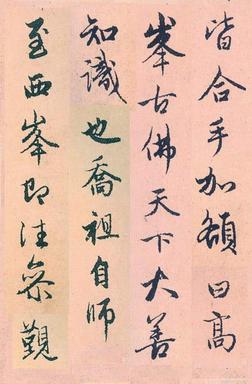 皆合手加額曰高
峯古佛天下大善
知識也喬祖自師
至西峯即往參覲